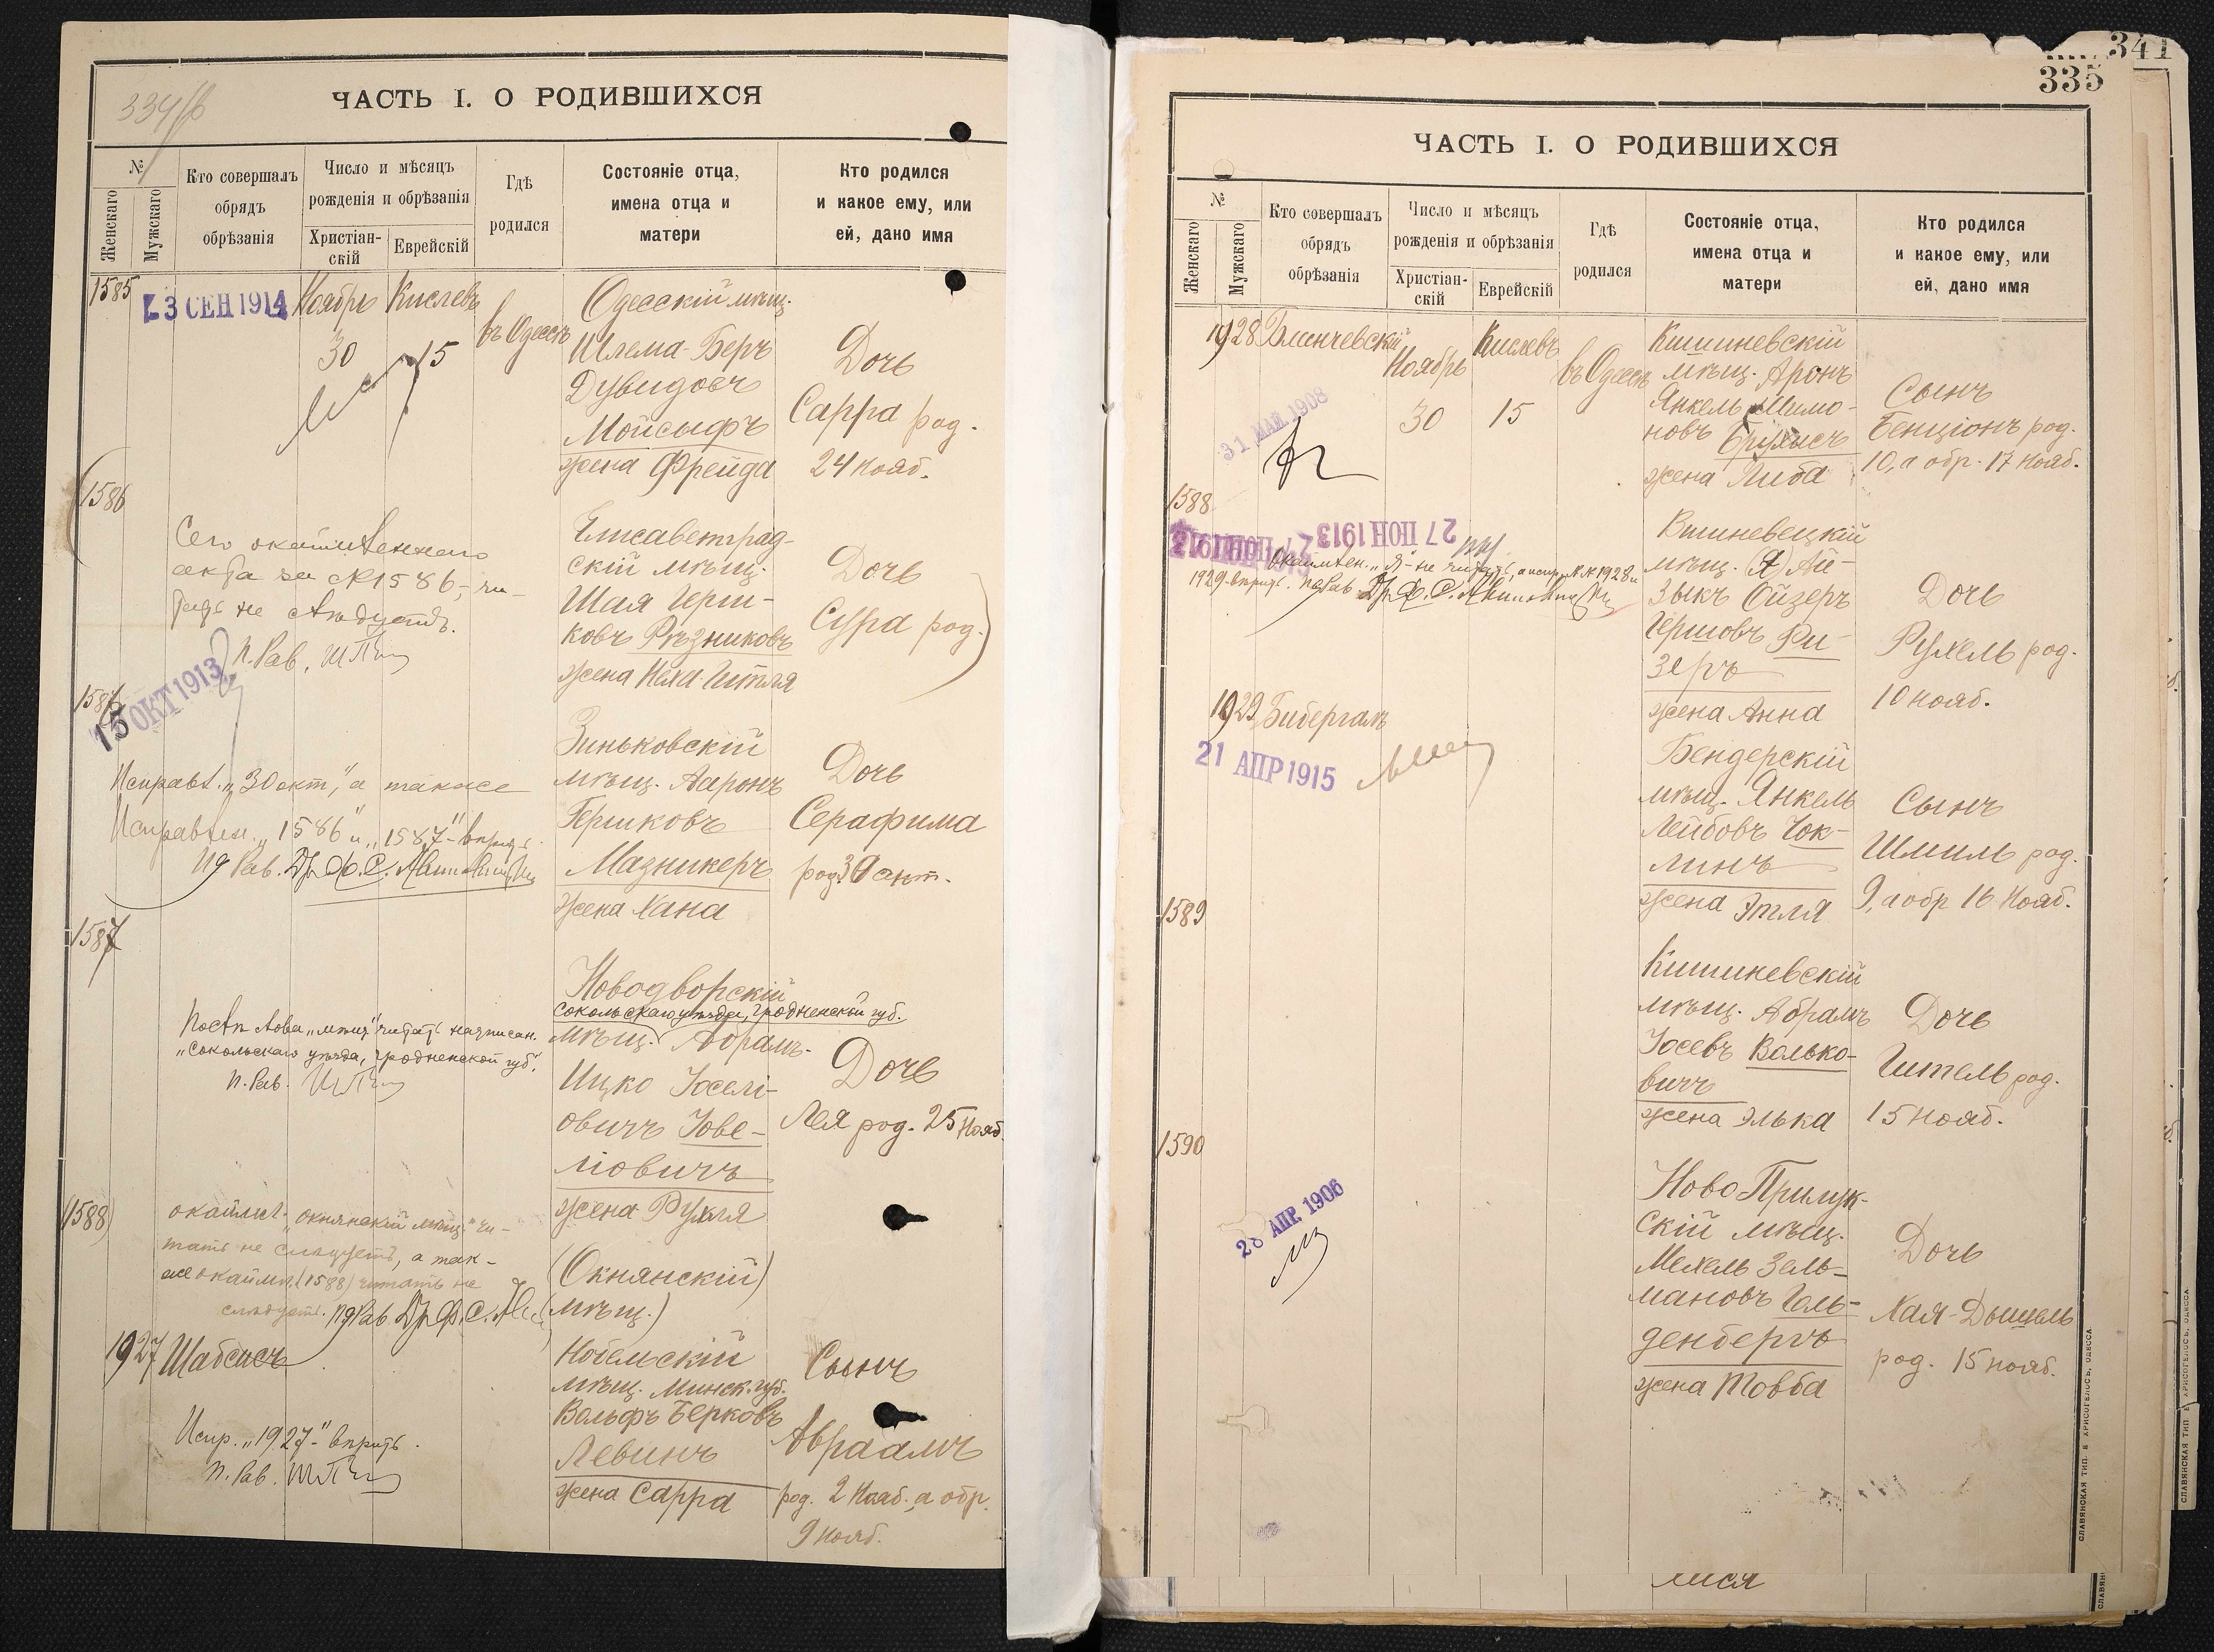 334/б
ЧАСТЬ I. О РОДИВШИХСЯ
№
Женскаго
Мужскаго
Кто совершалъ
обрядъ
обрѣзанія
Число и мѣсяцъ
рожденія и обрѣзанія
Христіан-
скій
Еврейскій
Гдѣ
родился
Состояніе отца,
имена отца и
матери
Кто родился
и какое ему, или
ей, дано имя
1585
3 СЕН 1914
Ноябрь
30
Кислевъ
15
въ Одессѣ
Одесскій мѣщ.
Шлема-Беръ
Дувидовъ
Мойсыфъ
жена Фрейда
Дочь
Сарра род.
24 нояб.
1586
Сего окаймленнаго
акта за №1586, чи-
тать не слѣдуетъ.
П. Рав.
Елисаветград-
скій мѣщ.
Шая Герш-
ковъ Рѣзниковъ
жена Неха-Гитля
Дочь
Сура род.
1586
15 ОКТ 1913
Исправл. „30 окт", а также
Исправлен. „1586" и „1587"- вѣрить
Ид Рав. Др. Ф. С.
Зиньковскій
мѣщ. Ааронъ
Гершковъ
Мазникеръ
жена Хана
Дочь
Серафима
род. 30 окт.
1587
Послѣ слова „мѣщ" читать надписан.
„Сокольскаго уѣзда, Гродненской губ."
П. Рав.
Новодворскій
Сокольскаго уѣзда, Гродненской губ.
мѣщ. Абрамъ-
Ицко Іоселі-
овичъ Іове-
ліовичъ
жена Рухля
Дочь
Лея род. 25 Нояб.
(1588)
окаймл. „окнянскій мѣщ." чи-
тать не слѣдуетъ, а так-
же окаймл. (1588) читать не
слѣдуетъ. Ид Рав. Др. Ф. С.
(Окнянскій)
(мѣщ.)
1927
Шабсисъ
Испр. „1927"- вѣрить.
П. Рав.
мѣщ. Минск. губ.
Вольфъ Берковъ
Левинъ
жена Сарра
Сынъ
Авраамъ
род. 2 Нояб., а обр.
9 Нояб.
341
335
ЧАСТЬ I. О РОДИВШИХСЯ
№
Женскаго
Мужскаго
Кто совершалъ
обрядъ
обрѣзанія
Число и мѣсяцъ
рожденія и обрѣзанія
Христіан-
скій
Еврейскій
Гдѣ
родился
Состояніе отца,
имена отца и
матери
Кто родился
и какое ему, или
ей, дано имя
1928
Блинчевскій
31 МАЙ 1908
Ноябрь
30
Кислевъ
15
въ Одессѣ
Кишиневскій
мѣщ. Аронъ
Янкель Шимо-
новъ
жена Либа
Сынъ
Бенціонъ род.
10, а обр. 17 Нояб.
1588
27 ІЮН 1913
27 ІЮН 1913
Окаймлен. „Я"- не читать, а испр. №№ 1928 и
1929- вѣрить. Др. Ф. С.
Вишневецкій
мѣщ. (Я) Ай-
зыкъ Ойзеръ
Гершовъ Ри-
зеръ
жена Анна
Дочь
Рухель род.
10 нояб.
1929
Бибергалъ
21 АПР 1915
Бендерскій
мѣщ. Янкель
Лейбовъ Чок-
линъ
жена Этля
Сынъ
Шмиль род.
9, а обр 16 Нояб.
1589
Кишиневскій
мѣщ. Абрамъ
Іосевъ Волько-
вичъ
жена Элька
Дочь
Гитель род.
15 нояб.
1590
28 АПР. 1906
Ново Прилук-
скій мѣщ.
Мехель Зель-
мановъ Голь-
денбергъ
жена Товба
Дочь
Хая-Дышель
род. 15 нояб.
СЛАВЯНСКАЯ ТИП. Е. ХРИСОГЕЛОСЪ, ОДЕССА.
СЛАВЯНСКАЯ ТИП. Е. ХРИСОГЕЛОСЪ, ОДЕССА.